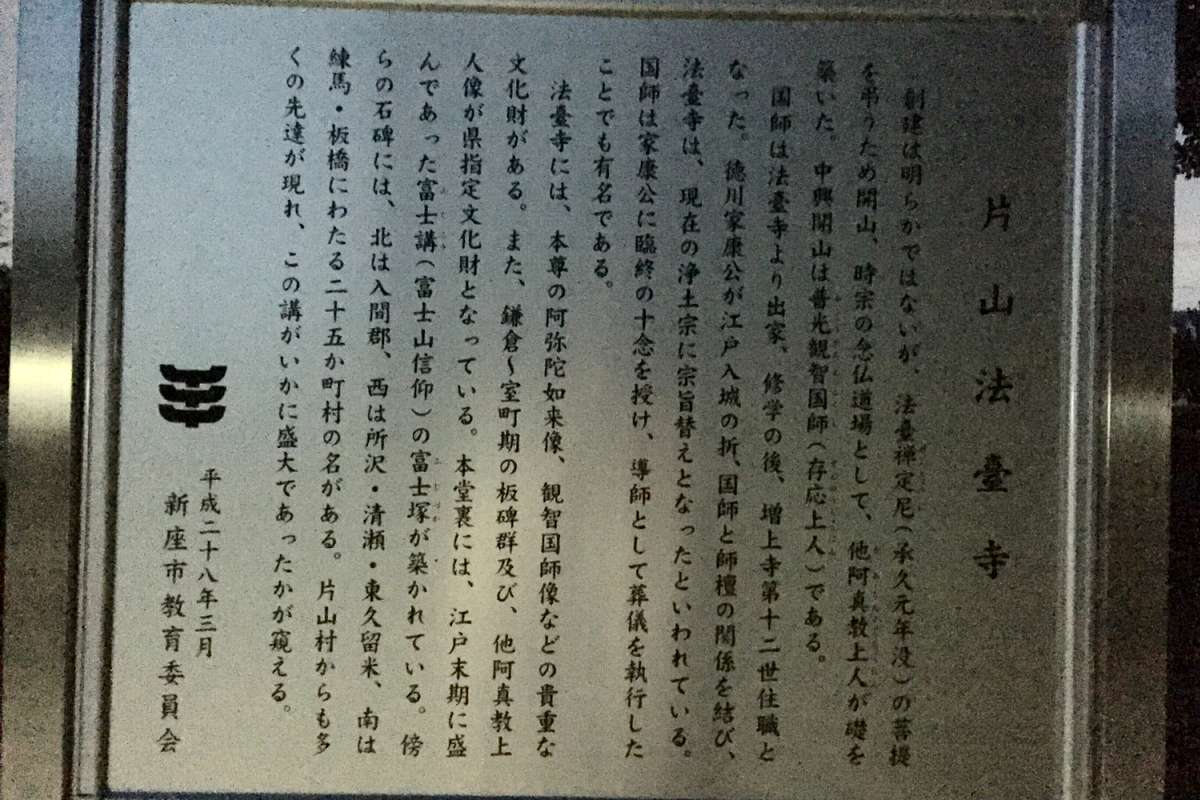 片山法臺寺
創建は明らかではないが、法臺禅定尼(承久元年没)の菩提
を弔うため開山、時宗の念仏道場として、他阿真教上人が礎を
築いた。中興開山は普光観智国師(存応上人)である。
国師は法臺寺より出家、修学の後、増上寺第十二世住職と
なった。徳川家康公が江戸入城の折、国師と師檀の関係を結び、
法臺寺は、現在の浄土宗に宗旨替えとなったといわれている。
国師は家康公に臨終の十念を授け、導師として葬儀を執行した
ことでも有名である。
法臺寺には、本尊の阿弥陀如来像、観智国師像などの貴重な
文化財がある。また、鎌倉〜室町期の板碑群及び、他阿真教上
人像が県指定文化財となっている。本堂裏には、江戸末期に盛
んであった富士講(富士山信仰)の富士塚が築かれている。傍
らの石碑には、北は入間郡、西は所沢・清瀬・東久留米、南は
練馬・板橋にわたる二十五か町村の名がある。片山村からも多
くの先達が現れ、この講がいかに盛大であったかが窺える。
平成二十八年三月
新座市教育委員会